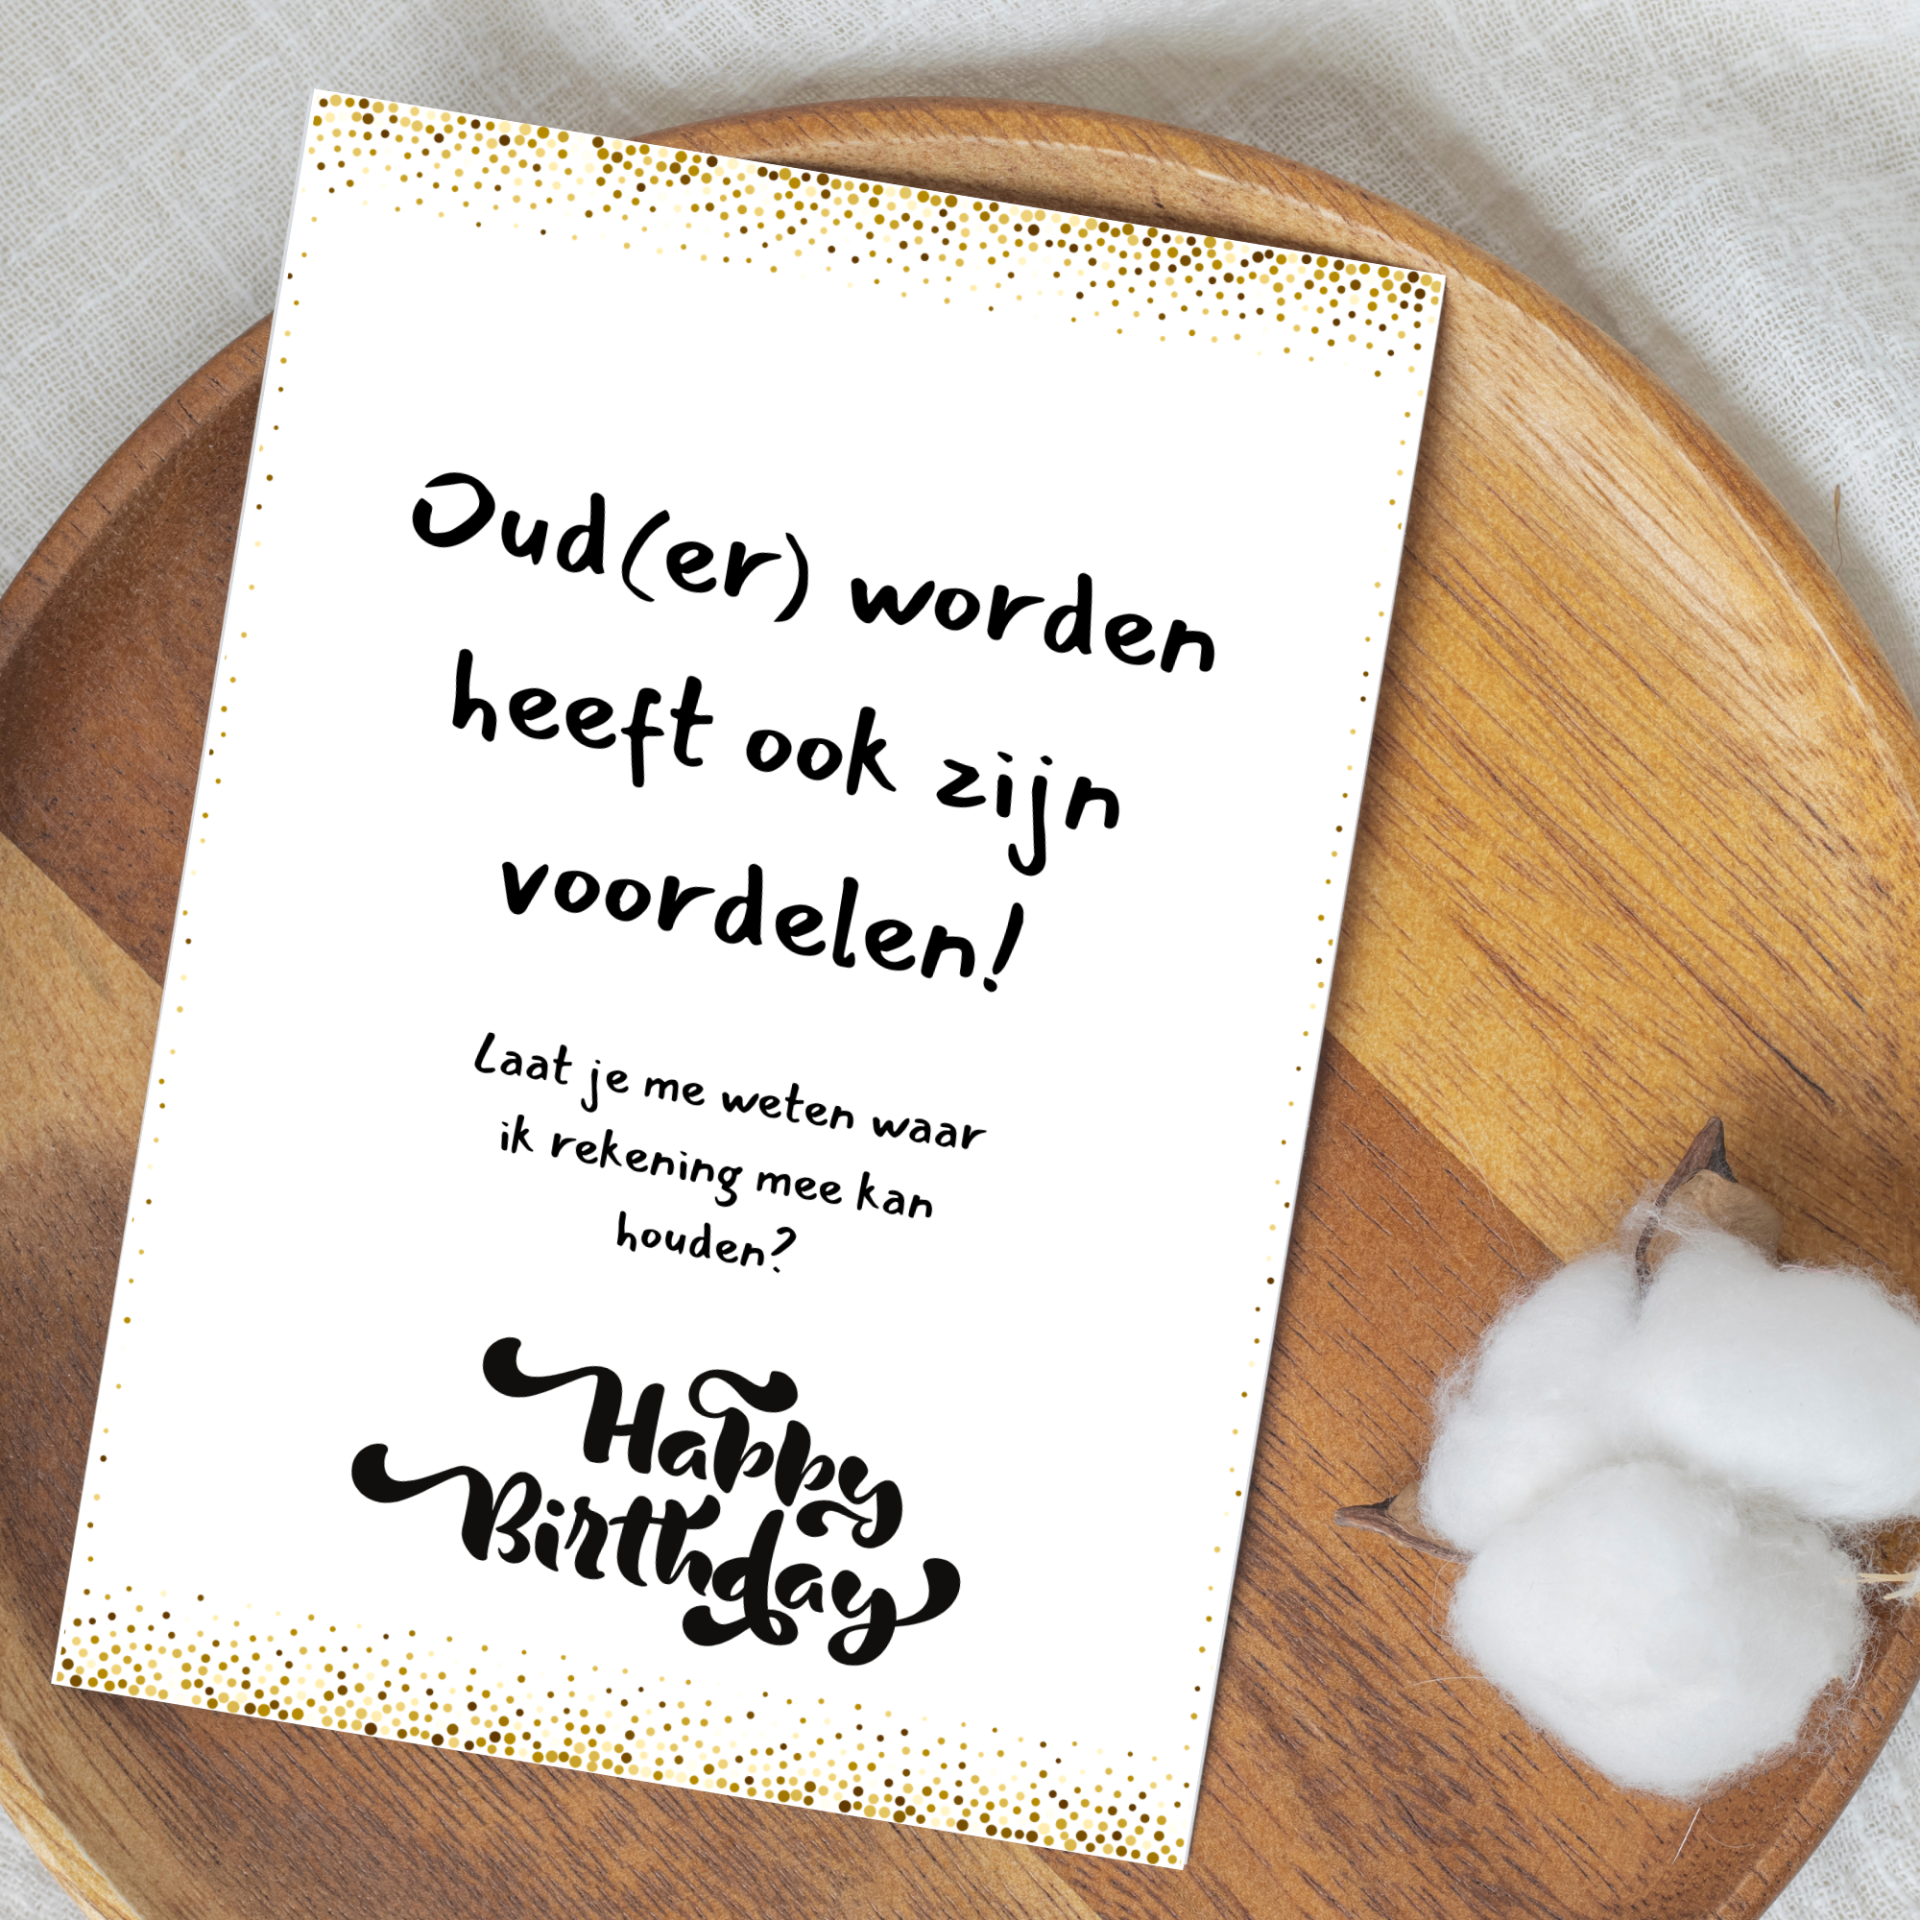 Oud(er) worden
heeft ook zijn
voordelen!
Laat je me weten waar
ik rekening mee kan
houden?
Happy
Birthday